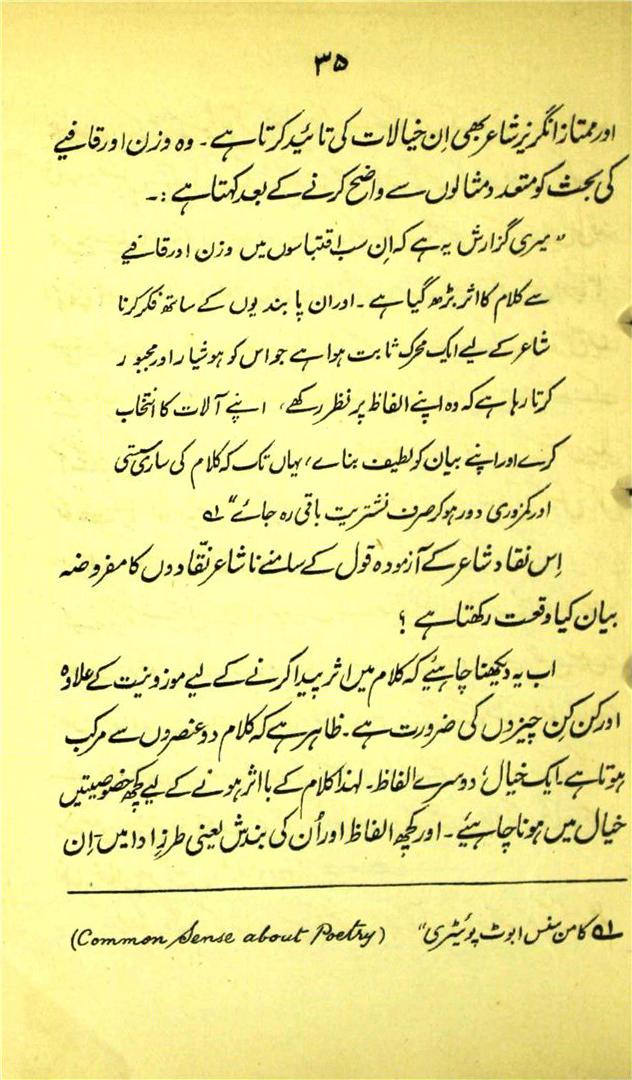 ۳۵
اور ممتاز انگریز شاعر بھی اِن خیالات کی تائید کرتا ہے۔ وہ وزن اور قافیے
کی بحث کو متعدد مثالوں سے واضح کرنے کے بعد کہتا ہے :۔
"میری گزارش یہ ہے کہ اِن سب اقتباسوں میں وزن اور قافیے
سے کلام کا اثر بڑھ گیا ہے۔ اور ان پابندیوں کے ساتھ فکر کرنا
شاعر کے لیے ایک محرک ثابت ہوا ہے جو اس کو ہوشیار اور مجبور
کرتا رہا ہے کہ وہ اپنے الفاظ پر نظر رکھے، اپنے آلات کا انتخاب
کرے اور اپنے بیان کو لطیف بنائے، یہاں تک کہ کلام کی ساری سستی
اور کمزوری دور ہو کر صرف نشتریت باقی رہ جائے" ؎۱
اِس نقاد شاعر کے آزمودہ قول کے سامنے نا شاعر نقّادوں کا مفروضہ
بیان کیا وقعت رکھتا ہے ؟
اب یہ دیکھنا چاہیئے کہ کلام میں اثر پیدا کرنے کے لیے موزونیت کے علاوہ
اور کن کِن چیزوں کی ضرورت ہے۔ ظاہر ہے کہ کلام دو عنصروں سے مرکب
ہوتا ہے۔ ایک خیال، دوسرے الفاظ۔ لہذا کلام کے با اثر ہونے کے لیے کچھ خصوصیتیں
خیال میں ہونا چاہیئے۔ اور کچھ الفاظ اور اُن کی بندش یعنی طرزِ ادا میں۔ اِن
؎۱ کامن سنس ابوٹ پوئیٹری" (Common Sense about Poetry)